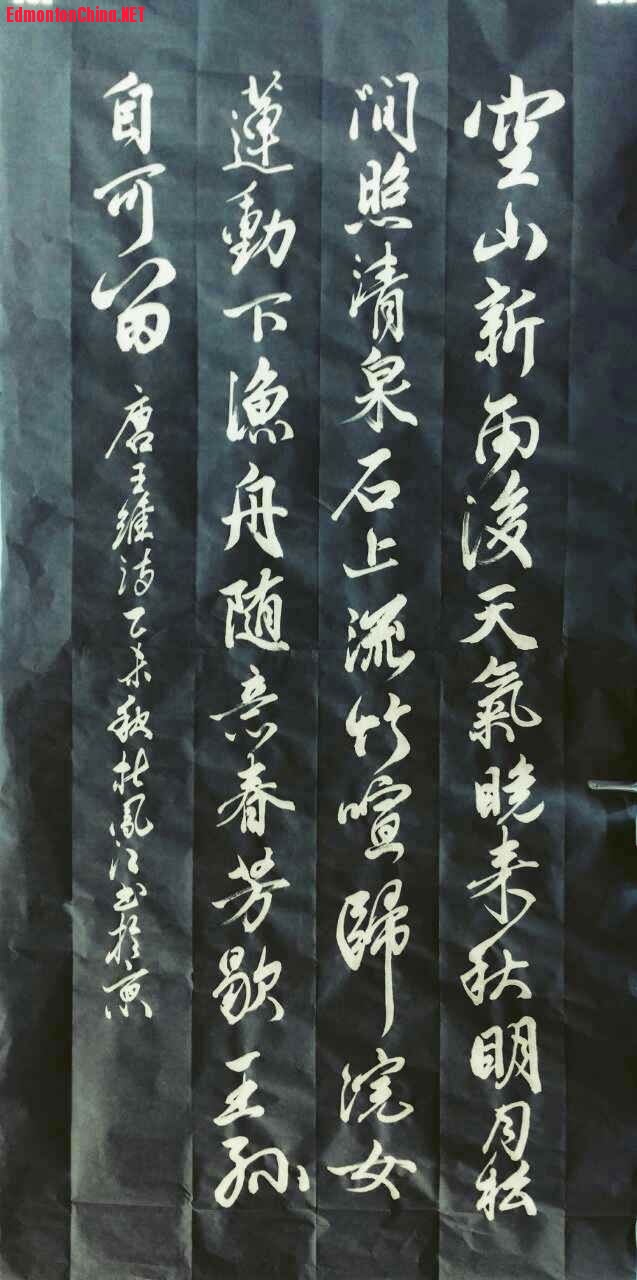 EdmontonChina.NET
空山新雨後天氣晚来秋明月松
間照清泉石上流竹喧歸浣女
蓮動下漁舟随意春芳歇王孫
自可留
唐王維诗乙未秋杜鳳江书於京